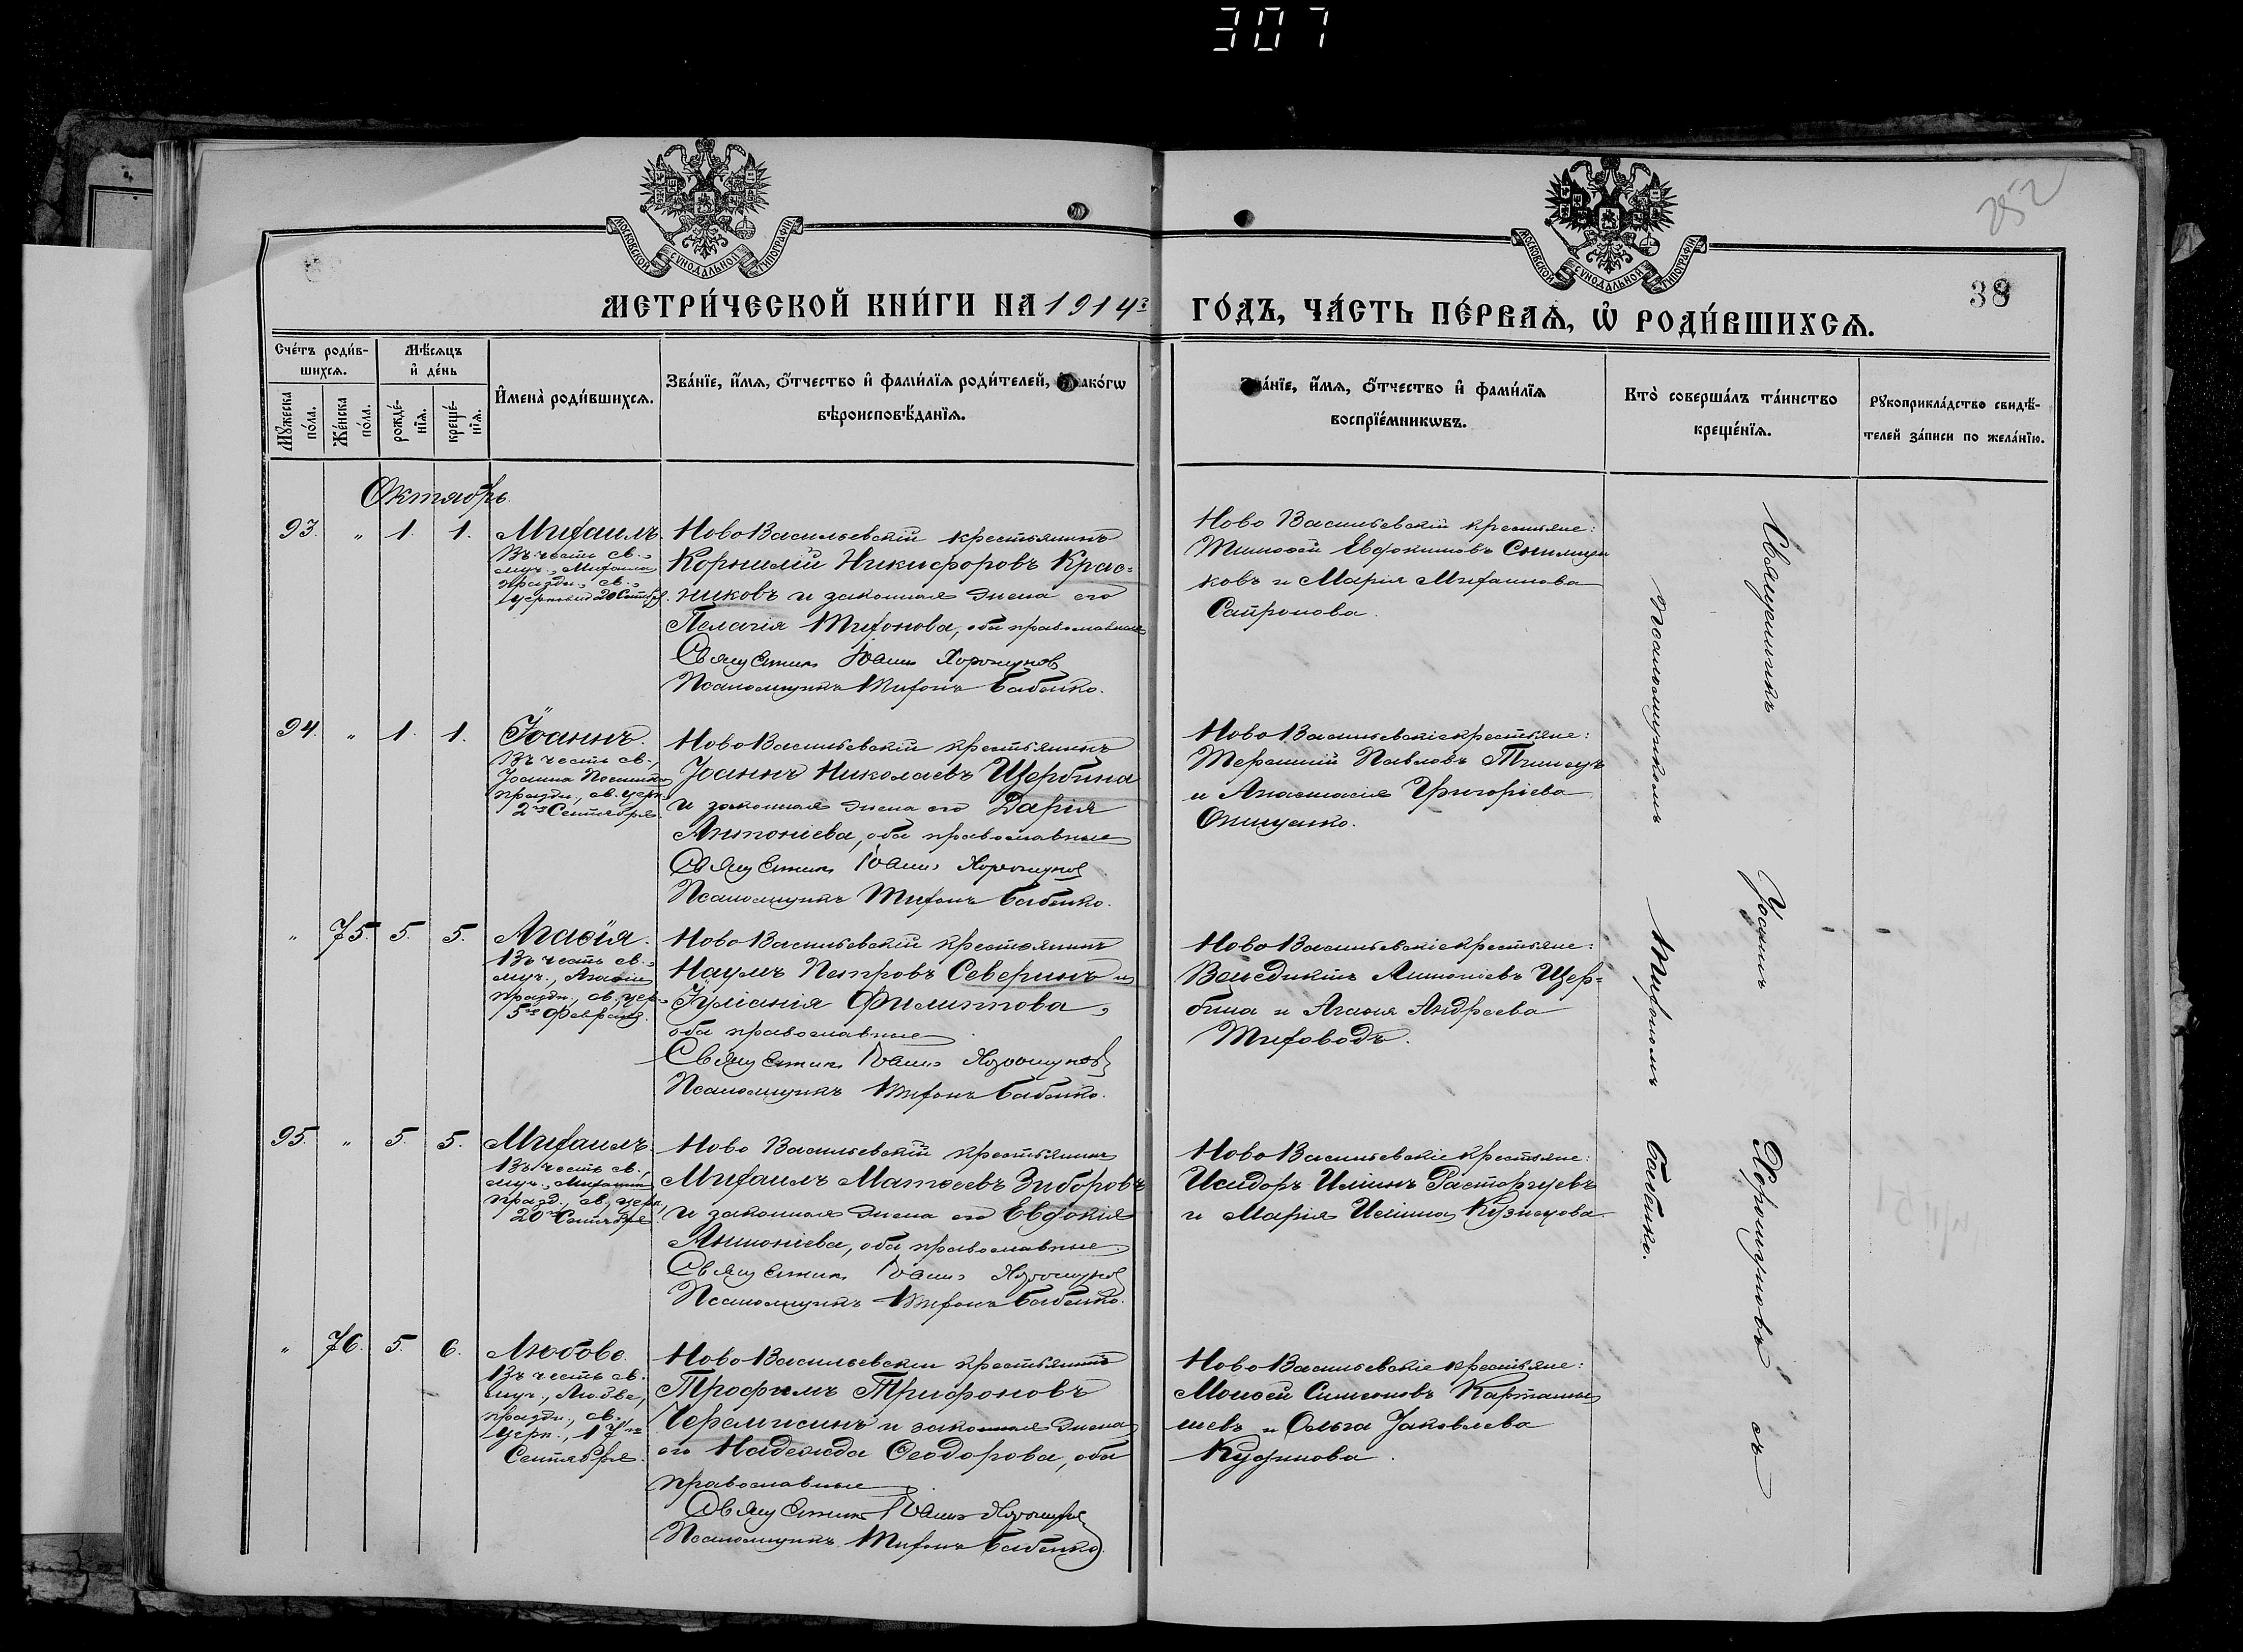 307
252
МОСКОВСКОЙ СѴНОДАЛЬНОЙ ТИПОГРАФІИ
МОСКОВСКОЙ СѴНОДАЛЬНОЙ ТИПОГРАФІИ
38
МЕТРИ́ЧЕСКОЙ КНИ́ГИ НА 1914й
ГО́ДЪ, ЧА́СТЬ ПЕ́РВАѦ, Ѡ҆ РОДИ́ВШИХСѦ.
Сче́тъ роди́в-
шихсѧ.
Мѣ́сѧцъ
и҆ де́нь
Мꙋ́жеска по́ла.
Же́нска по́ла.
рожде́-нїѧ.
креще́-нїѧ.
И҆мена̀ роди́вшихсѧ.
Зва́нїе, и҆́мѧ, ѻ҆́тчество и҆ фами́лїѧ роди́телей, и҆ како́гѡ
вѣроисповѣ́данїѧ.
Зва́нїе, и҆́мѧ, ѻ҆́тчество и҆ фами́лїѧ
воспрїе́мникѡвъ.
Кто̀ соверша́лъ та́инство
креще́нїѧ.
Рꙋкоприкла́дство свидѣ́-
телей за́писи по жела́нїю.
Октябрь.
93. " 1. 1. Михаилъ.
Въ честь св.,
муч., Михаила
праздн., св.,
церковью 20 Сентяб.
НовоВасильевскій крестьянинъ
Корнилій Никифоровъ Крас=
никовъ и законная жена его
Пелагія Тихонова, оба православные
Священник Іоанн Хорошунов
Псаломщикъ Тихонъ Бабенко.
Ново Васильевскіи крестьяне:
Тимофей Евдокимовъ
ковъ и Марія Михаилова
Сапронова.
94. " 1. 1. Іоаннъ.
Въ честь св.,
Іоанна Постника
праздн., св. церк.
2го Сентября.
НовоВасильевскій крестьянинъ
Іоаннъ Николаевъ Щербина
и законная жена его Дарія
Антоніева, оба православные
Священник Іоанн Хорошунов
Псаломщикъ Тихонъ Бабенко.
НовоВасильевскіе крестьяне:
Терентій Павловъ
и Анастасія Григоріева
Онищенко.
" 75. 5. 5. Агаѳія.
Въ честь св.,
муч., Агаѳіи
праздн., св. цер.
5го Февраля.
НовоВасильевскій крестьянинъ
Наумъ Петровъ Северинъ и
Іуліанія Филиппова,
оба православные
Священник Іоанн Хорошунов
Псаломщикъ Тихонъ Бабенко.
НовоВасильевскіе крестьяне:
Венедиктъ Антоніевъ Щер=
бина и Агаѳія Андреева
Тиховодъ.
95. " 5. 5. Михаилъ.
Въ честь св.,
муч., Михаила
празд., св. церк.,
20го Сентября.
Ново Васильевскій крестьянинъ
Михаилъ Матѳеевъ Зиборовъ
и законная жена его Евдокія
Антоніева, оба православные.
Священник Іоанн Хорошунов
Псаломщикъ Тихонъ Бабенко.
НовоВасильевскіе крестьяне:
Исидоръ Иліинъ Расторгуевъ
и Марія Иліина Кузнецова
" 76. 5. 6. Любовь.
Въ честь св.
муч., Любве,
праздн., св.
церк., 17го
Сентября.
НовоВасильевскіи крестьянинъ
Трофимъ Трифоновъ
Черемисинъ и законная жена
его Надежда Ѳеодорова, оба
православные
Священник Іоанн Хорошунов
Псаломщикъ Тихонъ Бабенко.
НовоВасильевскіе крестьяне:
Моисей Симеоновъ Карташы
шевъ и Ольга Іаковлева
Кудинова.
Священникъ Іоаннъ Хорошуновъ съ
псаломщикомъ Тихономъ Бабенко.